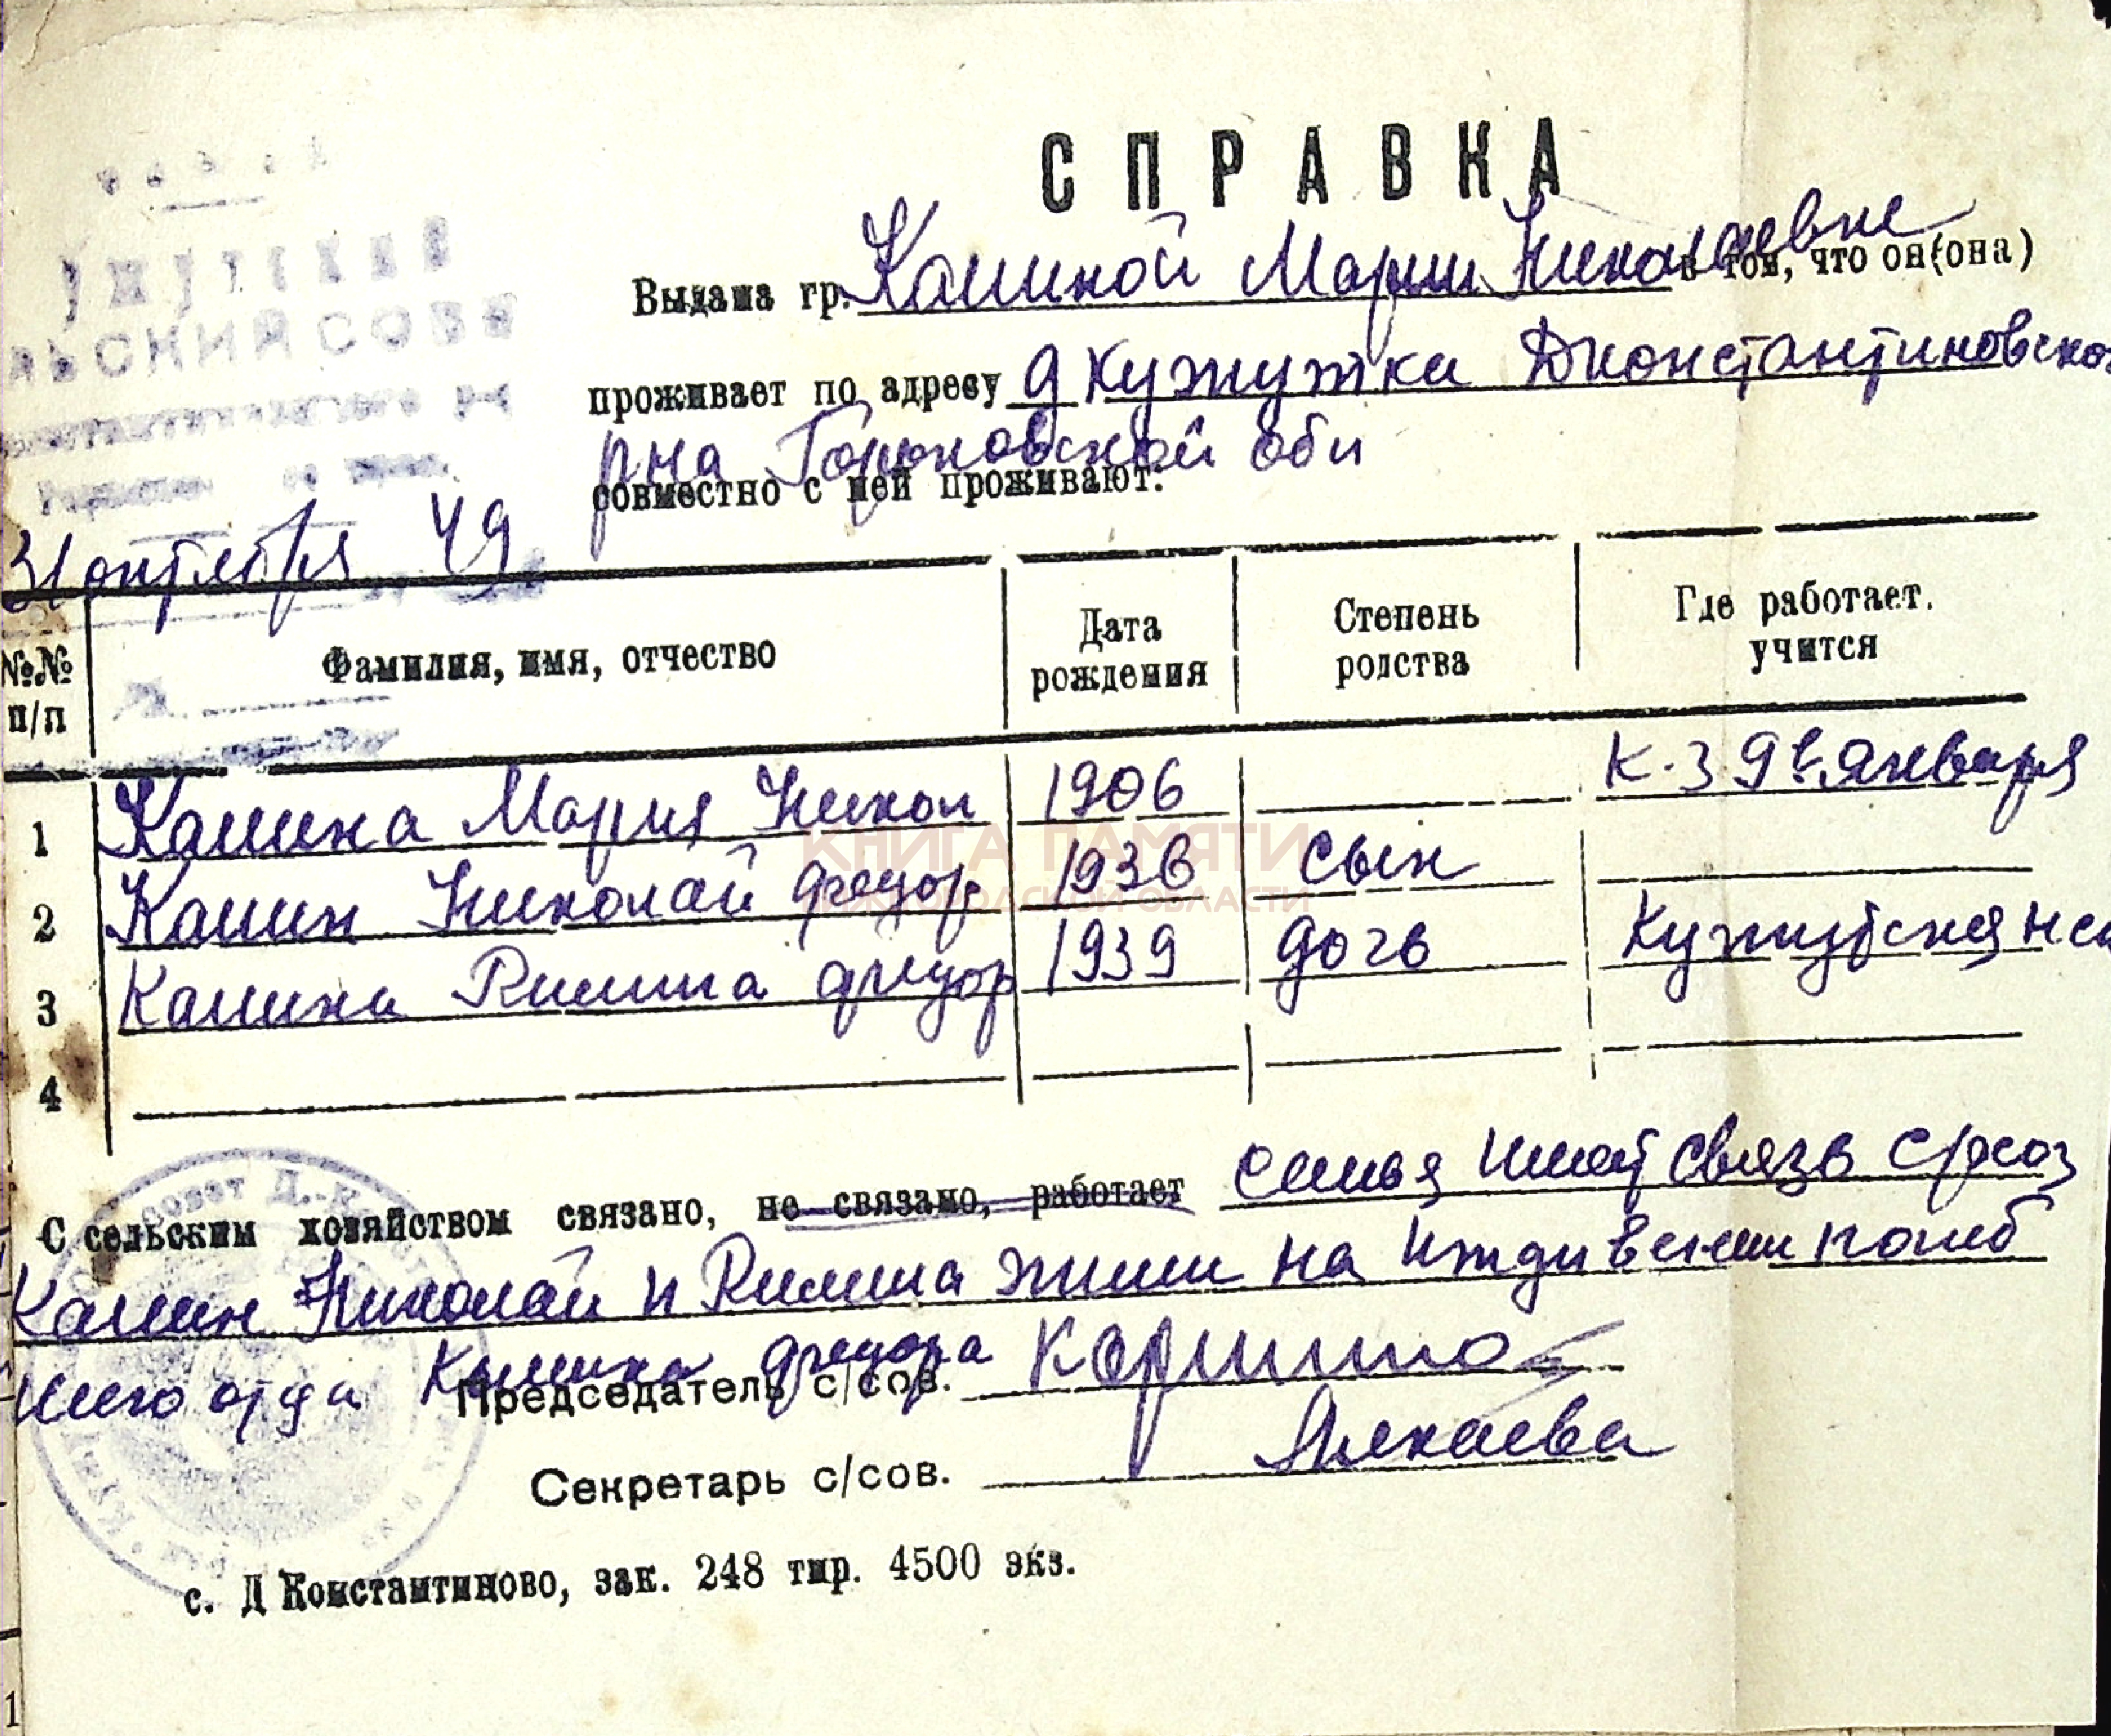 СПРАВКА
Выдана гр. Кашиной Марии Николаевне в том, что он(она)
проживает по адресу д Кужутки Дконстантиновско
рна Горьковской обл
совместно с ней проживают:
ЛЬСКИЙ СОВЕ
31 октября 49
№№ п/п
Фамилия, имя, отчество
Дата рождения
Степень родства
Где работает. учится
1 Кашина Мария Никол 1906 К-з 9е Января
2 Кашин Николай Федор 1936 сын
3 Кашина Римма Федор 1939 дочь Кужутская
4
КНИГА ПАМЯТИ
НИЖЕГОРОДСКОЙ ОБЛАСТИ
С сельским хозяйством связано, не связано, работает семья имеет связь с
Кашин Николай и Римма жили на иждивении погиб
шего отца Кашина Федора
Председатель с/сов.
Секретарь с/сов.
с. Д Константиново, зак. 248 тир. 4500 экз.
1